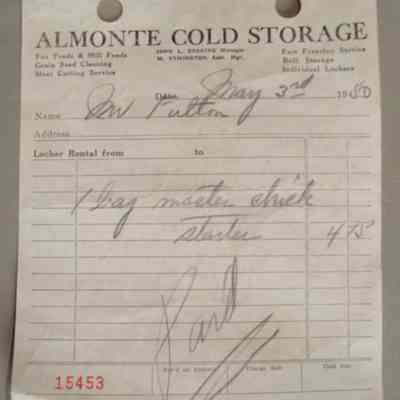 ALMONTE COLD STORAGE
Fur Trade & Mill Feeds
Grain Seed Cleaning
Meat Cutting Service
JOHN L. ERSKINE Manager
W. SYMINGTON, Asst. Mgr.
Fast Freezing Service
Bulk Storage
Individual Lockers
Date May 3rd 1950
Name Mr Fulton
Address
Locker Rental from to
1 bag master chick
starter 4 75
Paid
Rec'd on Account
15453